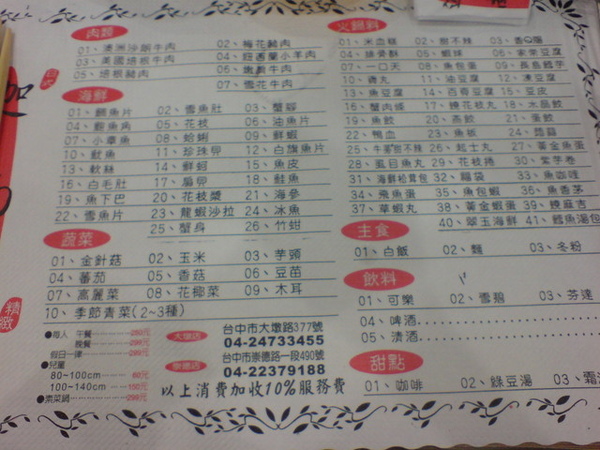 肉類
01、澳洲沙朗牛肉 02、梅花豬肉
03、美國培根牛肉 04、紐西蘭小羊肉
05、培根豬肉 06、嫩肩牛肉
07、雪花牛肉
海鮮
01、鯛魚片 02、雪魚肚 03、蟹腳
04、鯊魚角 05、花枝 06、油魚片
07、小章魚 08、蛤蜊 09、鮮蝦
10、魷魚 11、珍珠卵 12、白旗魚片
13、軟絲 14、鮮蚵 15、魚皮
16、白毛肚 17、扇貝 18、鮭魚
19、魚下巴 20、花枝漿 21、海參
22、雪魚片 23、龍蝦沙拉 24、冰魚
25、蟹身 26、竹蚶
蔬菜
01、金針菇 02、玉米 03、芋頭
04、蕃茄 05、香菇 06、豆苗
07、高麗菜 08、花椰菜 09、木耳
10、季節青菜(2~3種)
●每人 午餐
晚餐
假日一律
●兒童
80~100cm
100~140cm
●素菜鍋
大墩店 台中市大墩路377號
04-24733455
崇德店 台中市崇德路一段490號
04-22379188
以上消費加收10%服務費
火鍋料
01、米血糕 02、甜不辣 03、香Q腸
04、脆骨酥 05、蝦球 06、家常豆腐
07、一口天 08、魚包蛋 09、長島鱈芋
10、貢丸 11、油豆腐 12、凍豆腐
13、魚豆腐 14、百頁豆腐 15、豆皮
16、蟹肉條 17、燒花枝丸 18、水晶餃
19、魚餃 20、燕餃 21、蛋餃
22、鴨血 23、魚板 24、蒟蒻
25、牛蒡甜不辣 26、起士丸 27、黃金魚蛋
28、虱目魚丸 29、花枝捲 30、紫芋卷
31、海鮮松茸包 32、福袋 33、魚咖哩
34、飛魚蛋 35、魚包蝦 36、魚香茅
37、草蝦丸 38、黃金蝦蛋 39、燒麻吉
40、翠玉海鮮 41、鱈魚湯包
主食
01、白飯 02、麵 03、冬粉
飲料
01、可樂 02、雪碧 03、芬達
04、啤酒
05、清酒
甜點
01、咖啡 02、綠豆湯 03、霜
精緻